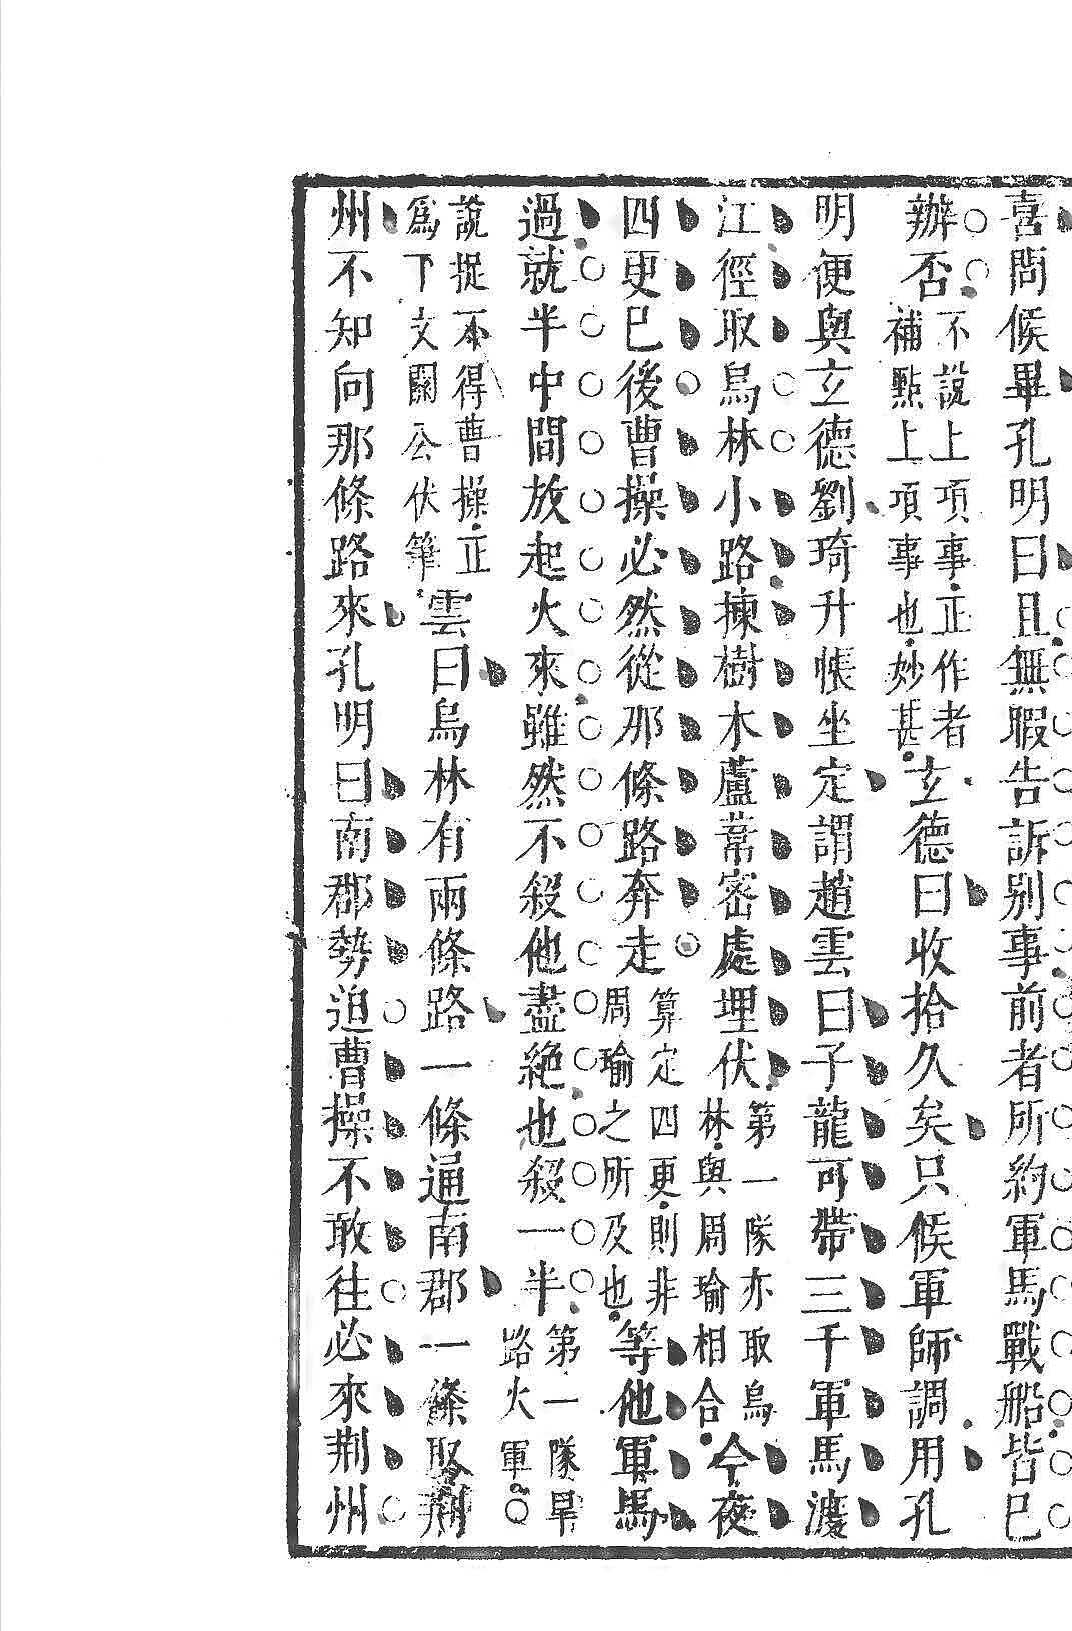 喜問候畢孔明曰且無暇告訴别事前者所約軍馬戰船皆已
辦否不說上項事正作者補點上項事也妙甚玄德曰收拾久矣只候軍師調用孔
明便與玄德劉琦升帳坐定謂趙雲曰子龍可帶三千軍馬渡
江徑取烏林小路揀樹木蘆葦密處埋伏第一隊亦取烏林與周瑜相合今夜
四更已後曹操必然從那條路奔走算定四更則非周瑜之所及也等他軍馬
過就半中間放起火來雖然不殺他盡絶也殺一半第一隊旱路火軍○
說捉不得曹操正爲下文關公伏筆雲曰烏林有兩條路一條通南郡一條取荆
州不知向那條路來孔明曰南郡勢迫曹操不敢往必來荆州